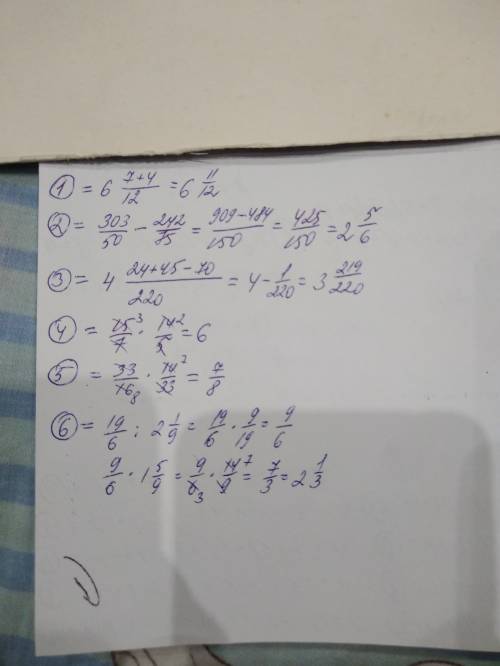 ① = 6 (7+4)/12 = 6 11/12
② = 303/50 - 242/75 = (909-484)/150 = 425/150 = 2 5/6
③ = 4 (24+45-70)/220 = 4 - 1/220 = 3 219/220
④ = 15³/7 · 14²/5 = 6
⑤ = 33/16₈ · 14⁷/33 = 7/8
⑥ = 19/6 : 2 1/9 = 19/6 · 9/19 = 9/6
9/6 · 1 5/9 = 9/6₃ · 14⁷/9 = 7/3 = 2 1/3